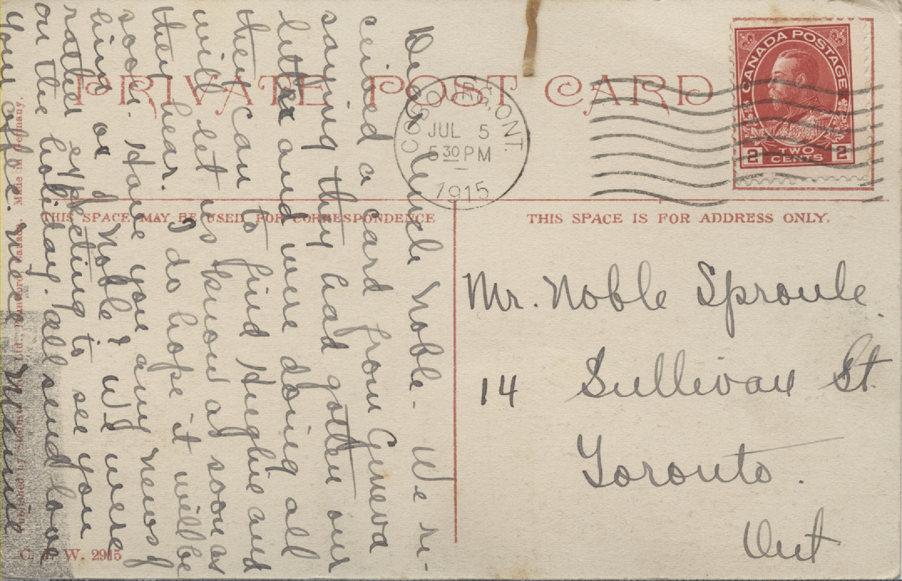 PRIVATE POST CARD
COBOURG ONT.
JUL 5
5 30 PM
1915
CANADA POSTAGE
2 TWO CENTS 2
THIS SPACE MAY BE USED FOR CORRESPONDENCE
THIS SPACE IS FOR ADDRESS ONLY.
Dear Uncle Noble - We re-
ceived a card from Geneva
saying they had gotten our
letter and were doing all
they can to find Hughie and
will let us know as soon as
they hear. I do hope it will be
soon. Have you any news of
or Noble? We were
rather expecting to see you
on the holiday. all send love
niece Mamie
Mr. Noble Sproule.
14 Sullivan St.
Toronto.
Ont
Ltd., Brantford, Canada. Made in Germany.
W. 2915